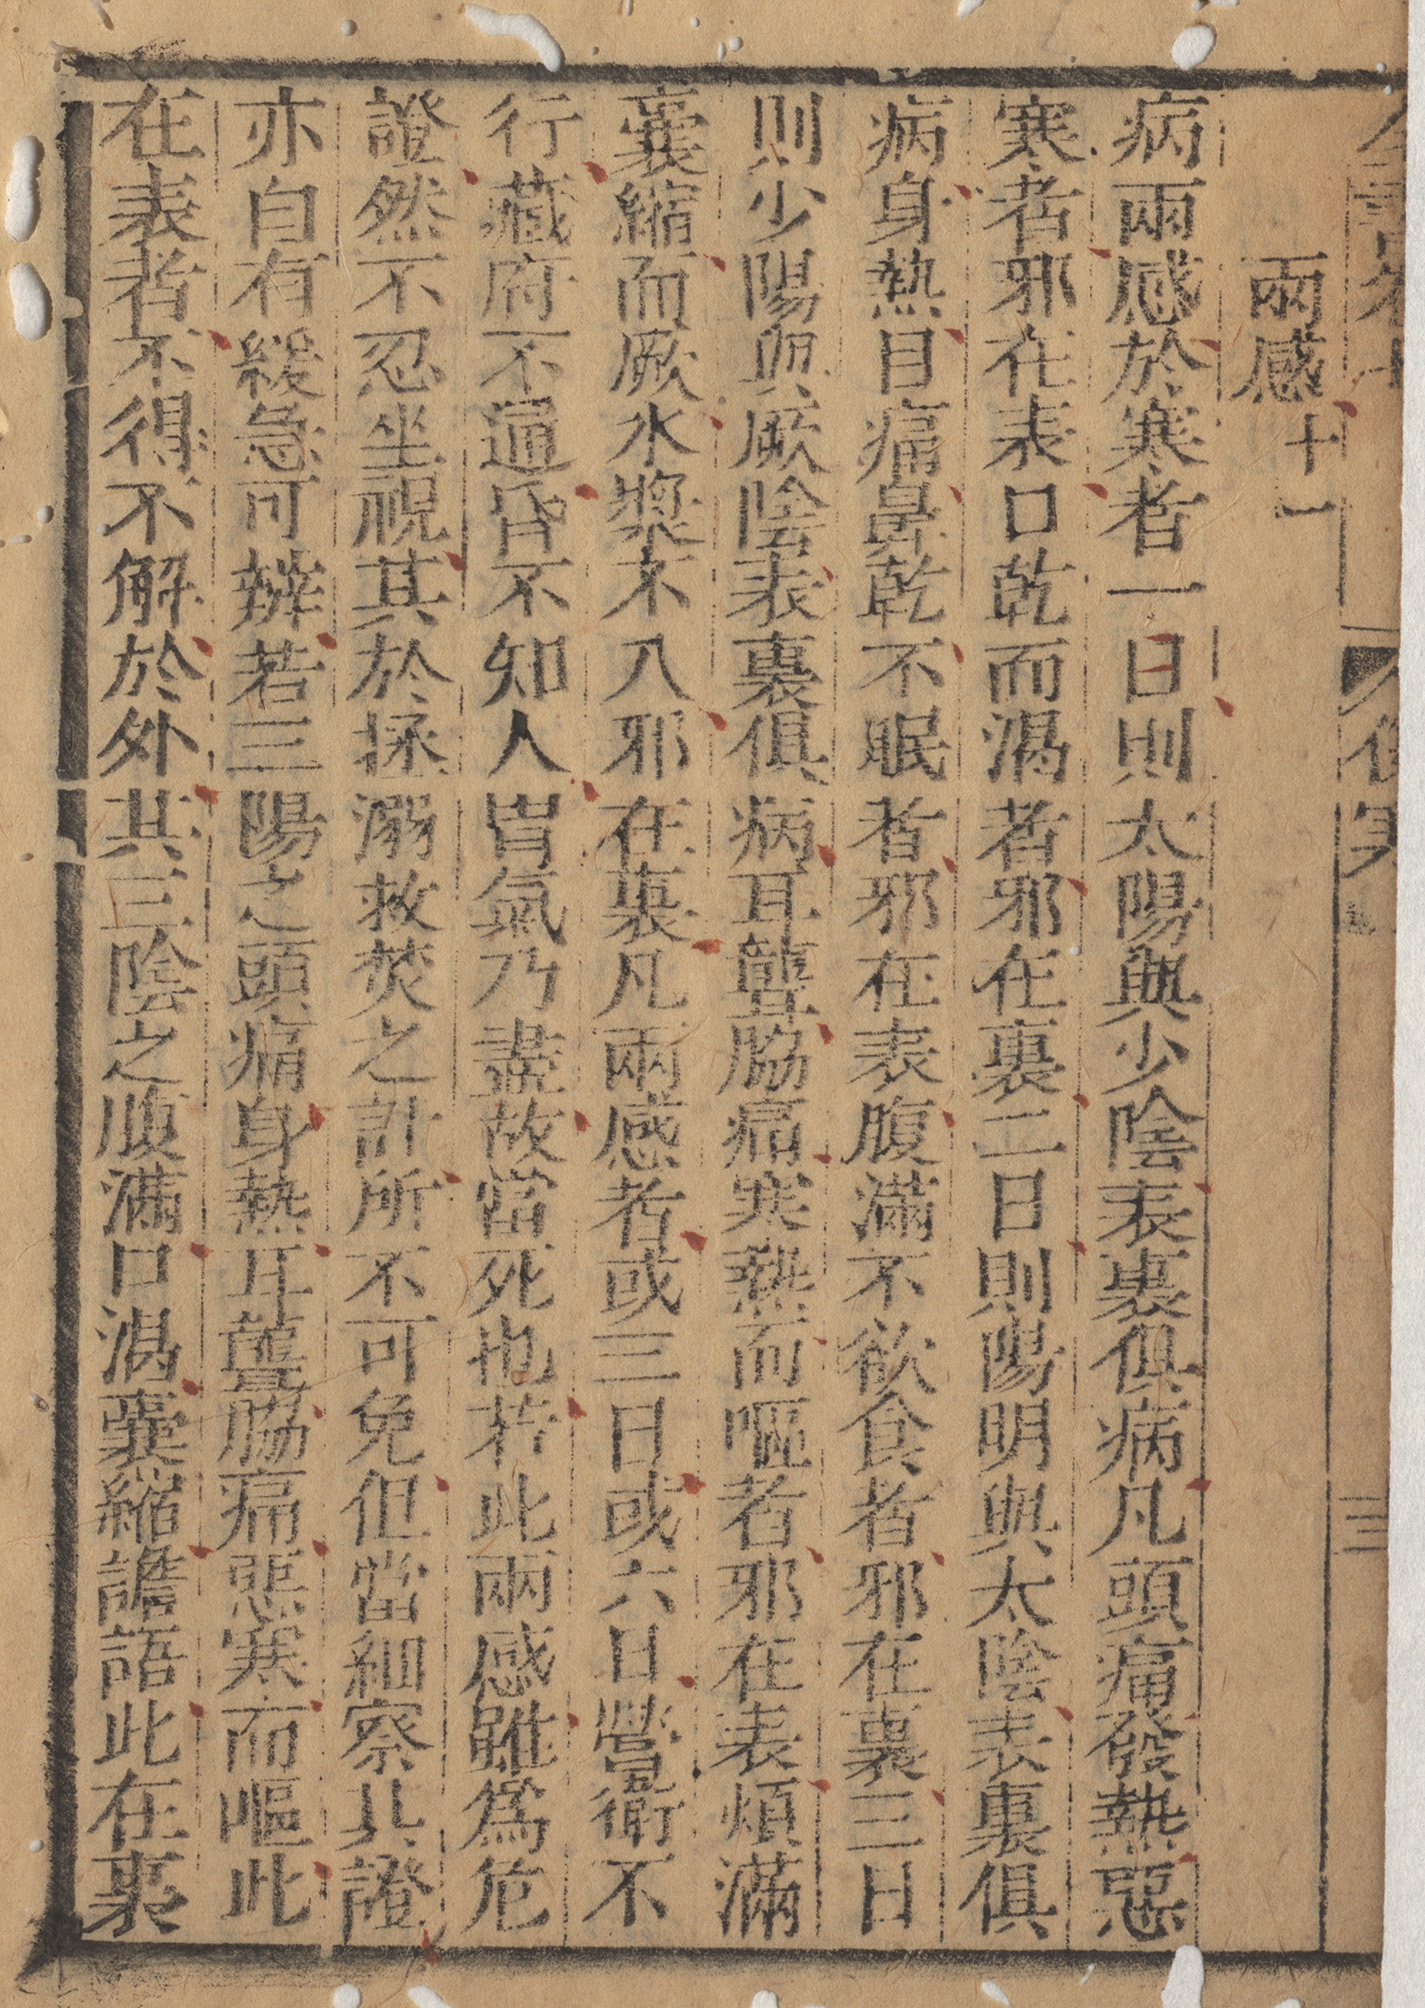 兩感十一
病兩感於寒者一日則太陽與少陰表裏俱病凡頭痛發熱惡
寒者邪在表口乾而渴者邪在裏二日則陽明與太陰表裏俱
病身熱目痛鼻乾不眠者邪在表腹滿不欲食者邪在裏三日
則少陽與厥陰表裏俱病耳聾脇痛寒熱而嘔者邪在表煩滿
囊縮而厥水漿不入邪在裏凡兩感者或三日或六日營衛不
行藏府不通昏不知人胃氣乃盡故當死也若此兩感雖爲危
證然不忍坐視其於拯溺救焚之計所不可免但當細察其證
亦自有緩急可辨若三陽之頭痛身熱耳聾脇痛惡寒而嘔此
在表者不得不解於外其三陰之腹滿口渴囊縮譫語此在裏